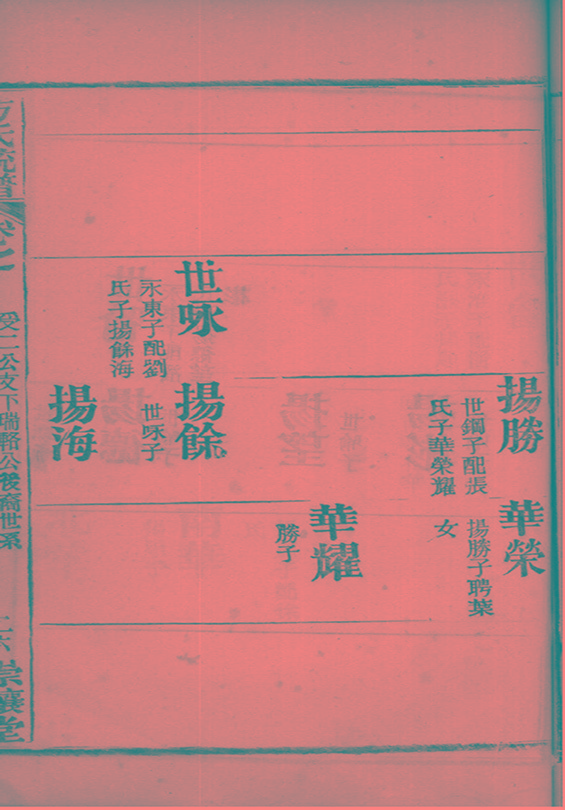 揚勝
世鋼子配張
氏子華榮耀
華榮
揚勝子聘葉
女
華耀
勝子
世咏
永東子配劉
氏子揚餘海
揚餘
世咏子
揚海
受二公支下瑞輅公後裔世系